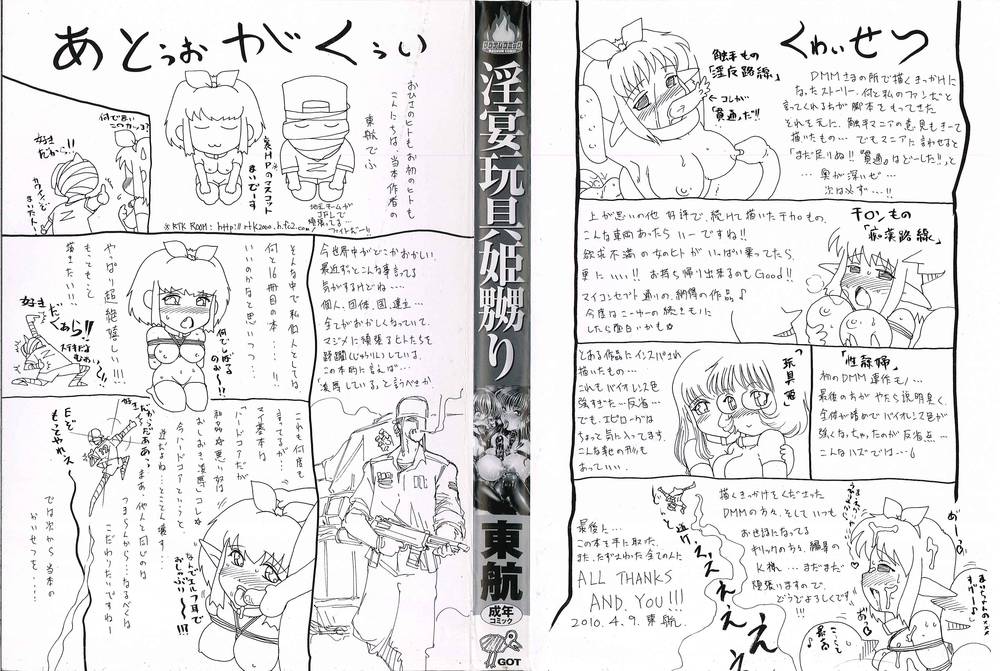 くわぃせつ
触手もの
「淫辱路線」
←コレが
「貫通」だ!!
DMMさまの所で描くきっかけに
なったストーリー。何と私のファンだと
言ってくれる方が脚本をもってきた
それを元に、触手マニアの意見もきーて
描いたもの…でもマニアに言わせると
「まだ足りぬ!!"貫通"はどーした!!」と
…奥が深いぜ…
次は必ず…!!
チカンもの
「痴漢路線」
上が思いの他好評で、続けて描いたチカもの。
こんな車両あったらいーですね!!
欲求不満の女のヒトがいっぱい乗ってたら、
更にいい!!お持ち帰り出来るのもGood!!
マイコンセプト通りの、納得の作品♪
今度はニーサーの続きもいに
したら面白いかも☆
「玩具姫」
とある作品にインスパイされ
描いたもの…
これもバイオレンス色
強すぎた…反省…
でも、エピローグは
ちょっと気に入ってます。
こんな愛の形も
あっていい。
「性隷婦」
初のDMM連作モノ…
最後の方がやたら説明臭く、
全体が暗めでバイオレンス色が
強くなっちゃったのが反省点…
こんなハズでは…
描くきっかけをくださった
DMMの方々、そしていつも
お世話になってる
キリックの方々、編集の
K様、…まだまだ
頑張りますので、
どうぞよろしくです。
!!!
最後に…
この本を手に取った、
また、たずさわった全ての人に
ALL THANKS
AND. YOU!!!
2010.4.9. 東航
淫宴玩具姫嬲り
東航
成年
コミック
GOT
あとぅおがくぅい
おひさのヒトもお初のヒトも
こんにちは、当本作者の
東航でふ
哀HPのマスコット
まいでーす
地球チームが
JPLで
頑張ってる…
ファイトだー!!
※RTK ROOM: http://rtk2000.h.fc2.com
何で甚い
このカッコ?
好き
だから!!
カワイイぜ
まいたん!
今世界中がどこかおかしい。
最近ずっとこんな事言ってる
気がするけどね…
個人、団体、国、連立…
全てがおかしくなっていて、
マジメに頑張るヒトたちを
蹂躙(じゅうりん)している。
この本的に言えば…
「凌辱している」と言うべきか
そんな中で私個人としては
何と16冊目の本…
いいのかなと思いつつ…
やっぱり超絶嬉しい!!!
もっともっと
描きたい!!
何でしばる
のぉ〜!!
好き
だくぁら!!
これも何度も
言ってるが…
マイ基本は
「ハードコア」だが
和姦☆悪い奴は
おしおき凌辱」コレ☆
今ハードコアというと
逆だよね…とことん壊す…
なんでエルフ耳で
おしゃぶりぃ〜!!
好き
だからだあぁっ
Eぞ
もっとやれえ〜
まあ、他人と同じのは
つまらんから…なるべく
こだわりたいですわー
では次から当本の
かいせつを…